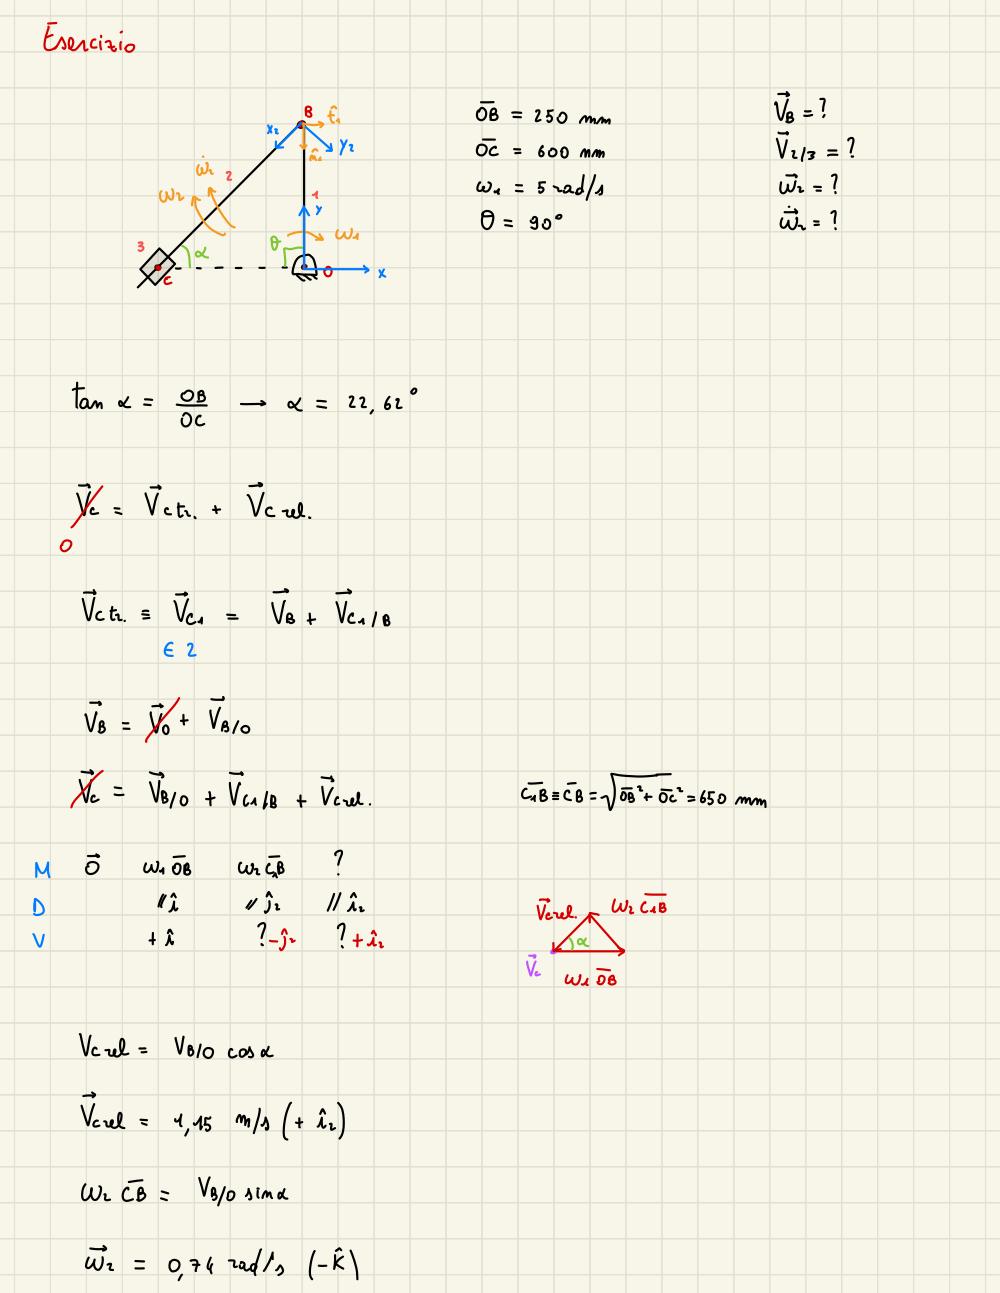 Esercizio
B
t̂₁
x₂
y₂
n̂₁
ω̇₂
2
ω₂
1
y
3
α
θ
ω₁
C
O
x
OB̅ = 250 mm
OC̅ = 600 mm
ω₁ = 5 rad/s
θ = 90°
V⃗_B = ?
V⃗_2/3 = ?
ω⃗₂ = ?
ω̇⃗₂ = ?
tan α = OB/OC → α = 22,62°
V⃗_C = V⃗_C tr. + V⃗_C rel.
0
V⃗_C tr. ≡ V⃗_C₁ = V⃗_B + V⃗_C₁/B
∈ 2
V⃗_B = V⃗_O + V⃗_B/O
V⃗_C = V⃗_B/O + V⃗_C₁/B + V⃗_C rel.
C₁B̅ ≡ CB̅ = √(OB̅² + OC̅²) = 650 mm
M 0⃗ ω₁ OB̅ ω₂ C₁B̅ ?
D // î // ĵ₂ // î₂
V + î ? -ĵ₂ ? + î₂
V⃗_C rel. ω₂ C₁B̅
α
V⃗_C
ω₁ OB̅
V_C rel = V_B/O cos α
V⃗_C rel = 1,15 m/s (+ î₂)
ω₂ CB̅ = V_B/O sin α
ω⃗₂ = 0,74 rad/s (-k̂)